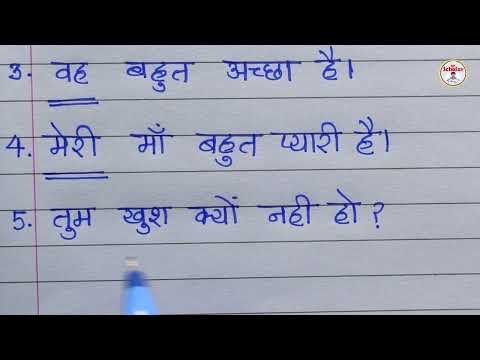 Scholar
3. वह बहुत अच्छा है।
4. मेरी माँ बहुत प्यारी है।
5. तुम खुश क्यों नही हो?